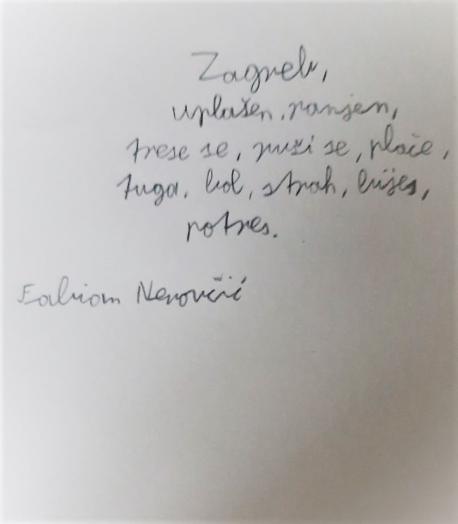 Zagreb,
uplašen, ranjen,
trese se, ruši se, plače,
tuga, bol, strah, bijes,
potres.
Fabian Nerovčić